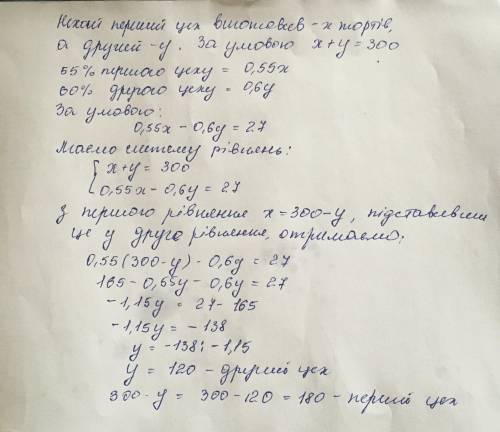 Нехай перший цех виготовив - x тортів,
а другий - y. За умовою x+y=300
55% першого цеху = 0,55x
60% другого цеху = 0,6y
За умовою:
0,55x - 0,6y = 27
Маємо систему рівнянь:
{ x+y = 300
0,55x - 0,6y = 27
З першого рівняння x=300-y, підставивши
це у друге рівняння, отримаємо:
0,55(300-y) - 0,6y = 27
165 - 0,55y - 0,6y = 27
-1,15y = 27 - 165
-1,15y = -138
y = -138 : -1,15
y = 120 - другий цех
300-y = 300-120 = 180 - перший цех